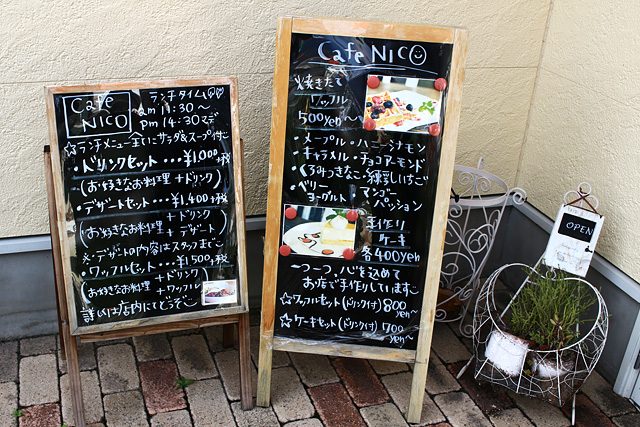 Cafe
NICO
ランチタイム
am 11:30〜
pm 14:30マデ
☆ランチメニュー全てにサラダ&スープ付
・ドリンクセット・・・¥1,000
(お好きなお料理+ドリンク)
・デザートセット・・・¥1,400
(お好きなお料理+ドリンク+デザート)
※デザートの内容はスタッフまで
・ワッフルセット・・・¥1,500
(お好きなお料理+ドリンク+ワッフル)
詳しくは店内にてどうぞ
Cafe NICO
焼きたて
ワッフル
500yen
・メープル・ハニーシナモン
・キャラメル・チョコアーモンド
・くるみっきなこ・練乳いちご
・ベリーヨーグルト
・マンゴーパッション
手作り
ケーキ
各400yen
一つ一つ、心を込めて
お店で手作りしています
☆ワッフルセット(ドリンク付)800yen
☆ケーキセット(ドリンク付)700yen
OPEN